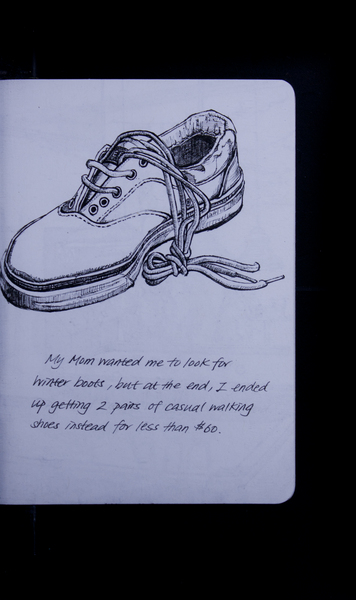 My Mom wanted me to look for
winter boots, but at the end, I ended
up getting 2 pairs of casual walking
shoes instead for less than $60.